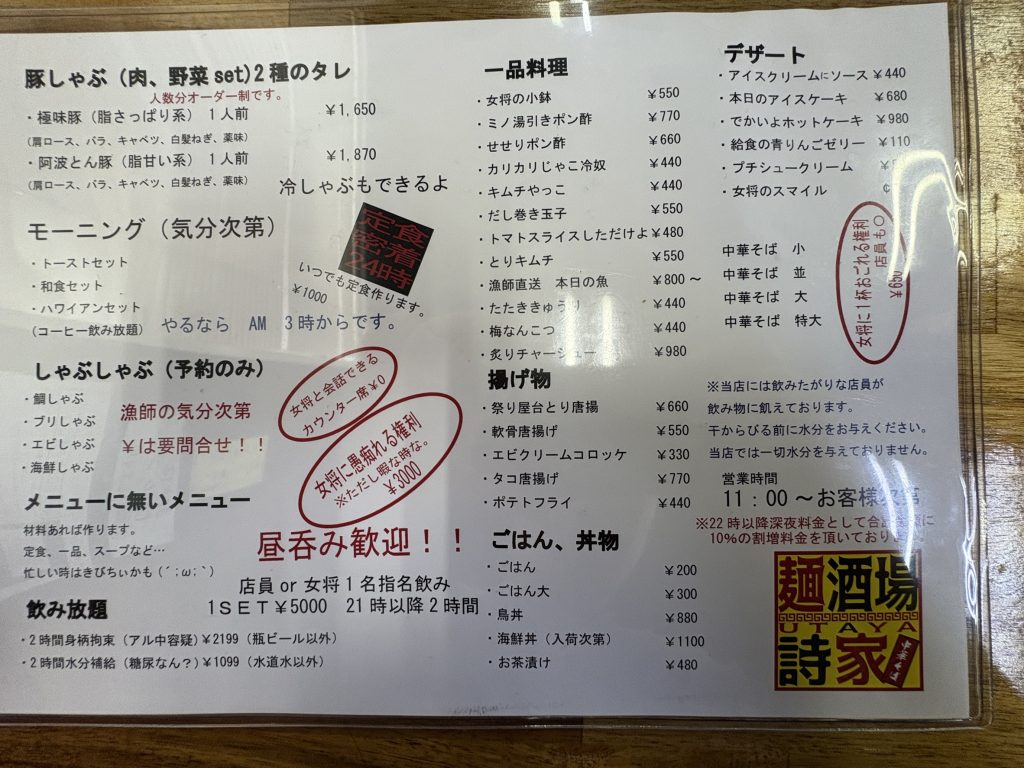 豚しゃぶ（肉、野菜set)２種のタレ
人数分オーダー制です。
・極味豚（脂さっぱり系）１人前 ￥1,650
（肩ロース、バラ、キャベツ、白髪ねぎ、薬味）
・阿波とん豚（脂甘い系）１人前 ￥1,870
（肩ロース、バラ、キャベツ、白髪ねぎ、薬味）
冷しゃぶもできるよ
モーニング（気分次第）
・トーストセット
・和食セット
・ハワイアンセット
（コーヒー飲み放題）
やるなら AM ３時からです。
定食
密着
24時
いつでも定食作ります。
￥1000
しゃぶしゃぶ（予約のみ）
・鯛しゃぶ
・ブリしゃぶ
・エビしゃぶ
・海鮮しゃぶ
漁師の気分次第
￥は要問合せ！！
女将と会話できる
カウンター席￥0
女将に愚痴れる権利
※ただし暇な時な。
￥3000
メニューに無いメニュー
材料あれば作ります。
定食、一品、スープなど…
忙しい時はきびちぃかも（´；ω；｀）
昼呑み歓迎！！
店員 or 女将１名指名飲み
１ＳＥＴ￥5000 21時以降２時間
飲み放題
・２時間身柄拘束（アル中容疑）￥2199（瓶ビール以外）
・２時間水分補給（糖尿なん？）￥1099（水道水以外）
一品料理
・女将の小鉢 ￥550
・ミノ湯引きポン酢 ￥770
・せせりポン酢 ￥660
・カリカリじゃこ冷奴 ￥440
・キムチやっこ ￥440
・だし巻き玉子 ￥550
・トマトスライスしただけよ ￥480
・とりキムチ ￥550
・漁師直送 本日の魚 ￥800～
・たたききゅうり ￥440
・梅なんこつ ￥440
・炙りチャーシュー ￥980
揚げ物
・祭り屋台とり唐揚 ￥660
・軟骨唐揚げ ￥550
・エビクリームコロッケ ￥330
・タコ唐揚げ ￥770
・ポテトフライ ￥440
ごはん、丼物
・ごはん ￥200
・ごはん大 ￥300
・鳥丼 ￥880
・海鮮丼（入荷次第） ￥1100
・お茶漬け ￥480
デザート
・アイスクリームにソース ￥440
・本日のアイスケーキ ￥680
・でかいよホットケーキ ￥980
・給食の青りんごゼリー ￥110
・プチシュークリーム
・女将のスマイル
中華そば 小
中華そば 並
中華そば 大
中華そば 特大
女将に１杯おごれる権利
店員も〇
￥650
※当店には飲みたがりな店員が
飲み物に飢えております。
干からびる前に水分をお与えください。
当店では一切水分を与えておりません。
営業時間
11：00～お客様次第
※22時以降深夜料金として
10％の割増料金を頂いております
麺酒場
UTAYA
詩家